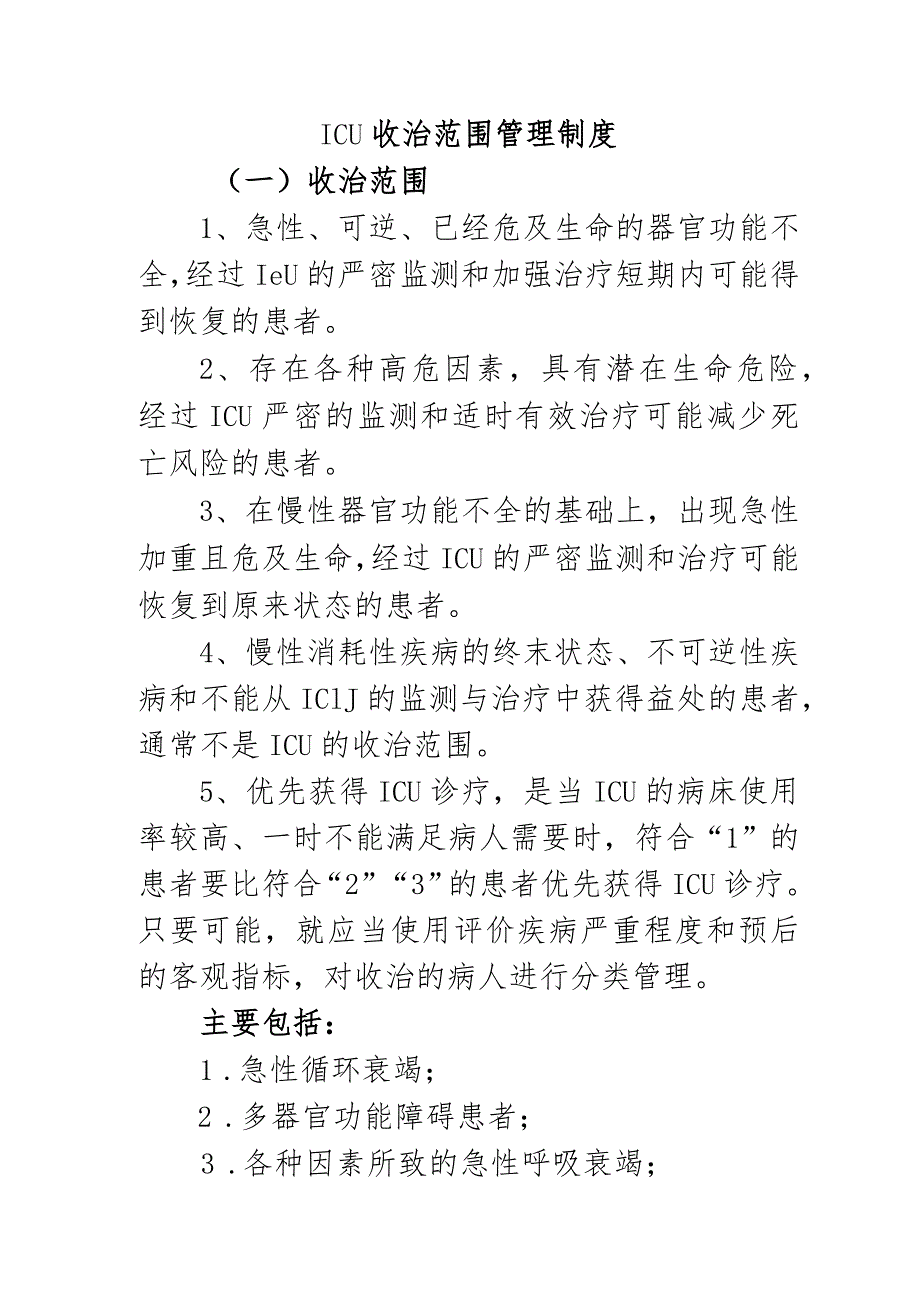 ICU收治范围管理制度
（一）收治范围
1、急性、可逆、已经危及生命的器官功能不
全,经过IeU的严密监测和加强治疗短期内可能得
到恢复的患者。
2、存在各种高危因素，具有潜在生命危险,
经过ICU严密的监测和适时有效治疗可能减少死
亡风险的患者。
3、在慢性器官功能不全的基础上，出现急性
加重且危及生命,经过ICU的严密监测和治疗可能
恢复到原来状态的患者。
4、慢性消耗性疾病的终末状态、不可逆性疾
病和不能从IClJ的监测与治疗中获得益处的患者,
通常不是ICU的收治范围。
5、优先获得ICU诊疗，是当ICU的病床使用
率较高、一时不能满足病人需要时，符合“1”的
患者要比符合“2”“3”的患者优先获得ICU诊疗。
只要可能，就应当使用评价疾病严重程度和预后
的客观指标，对收治的病人进行分类管理。
主要包括：
1.急性循环衰竭；
2.多器官功能障碍患者；
3.各种因素所致的急性呼吸衰竭；